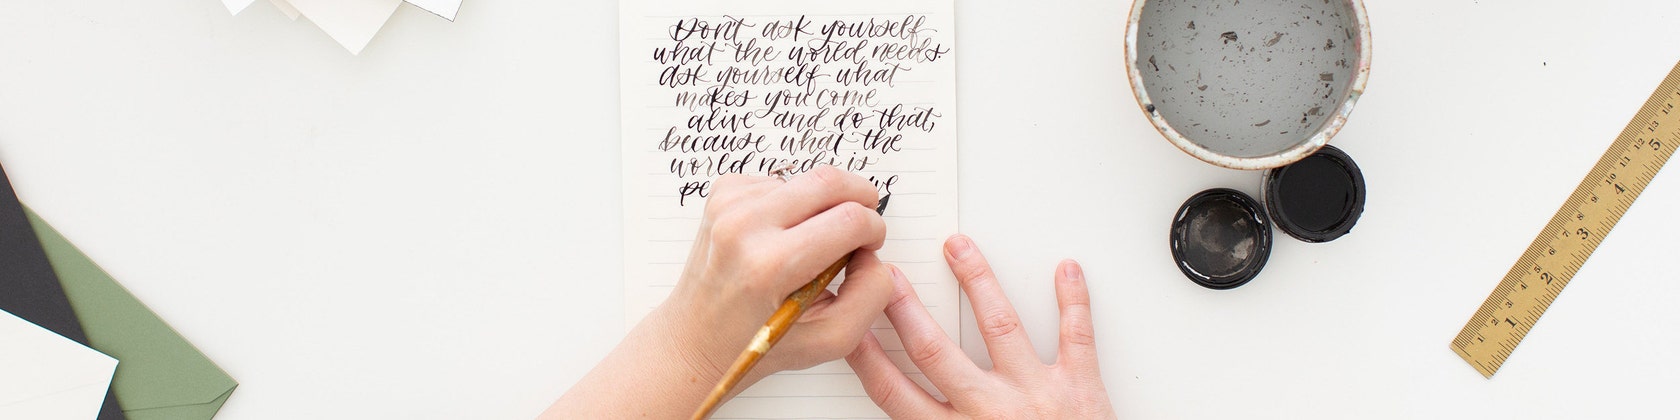 Don't ask yourself
what the world needs.
ask yourself what
makes you come
alive and do that,
because what the
world needs is
pe
1 2 3 4 5